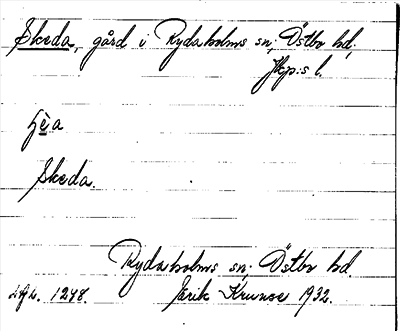 Skeda, gård i Rydaholms sn; Östbo hd,
Jkp:s l.
Skeda.
Rydaholms sn; Östbo hd.
1248. Erik Kruuse 1932.